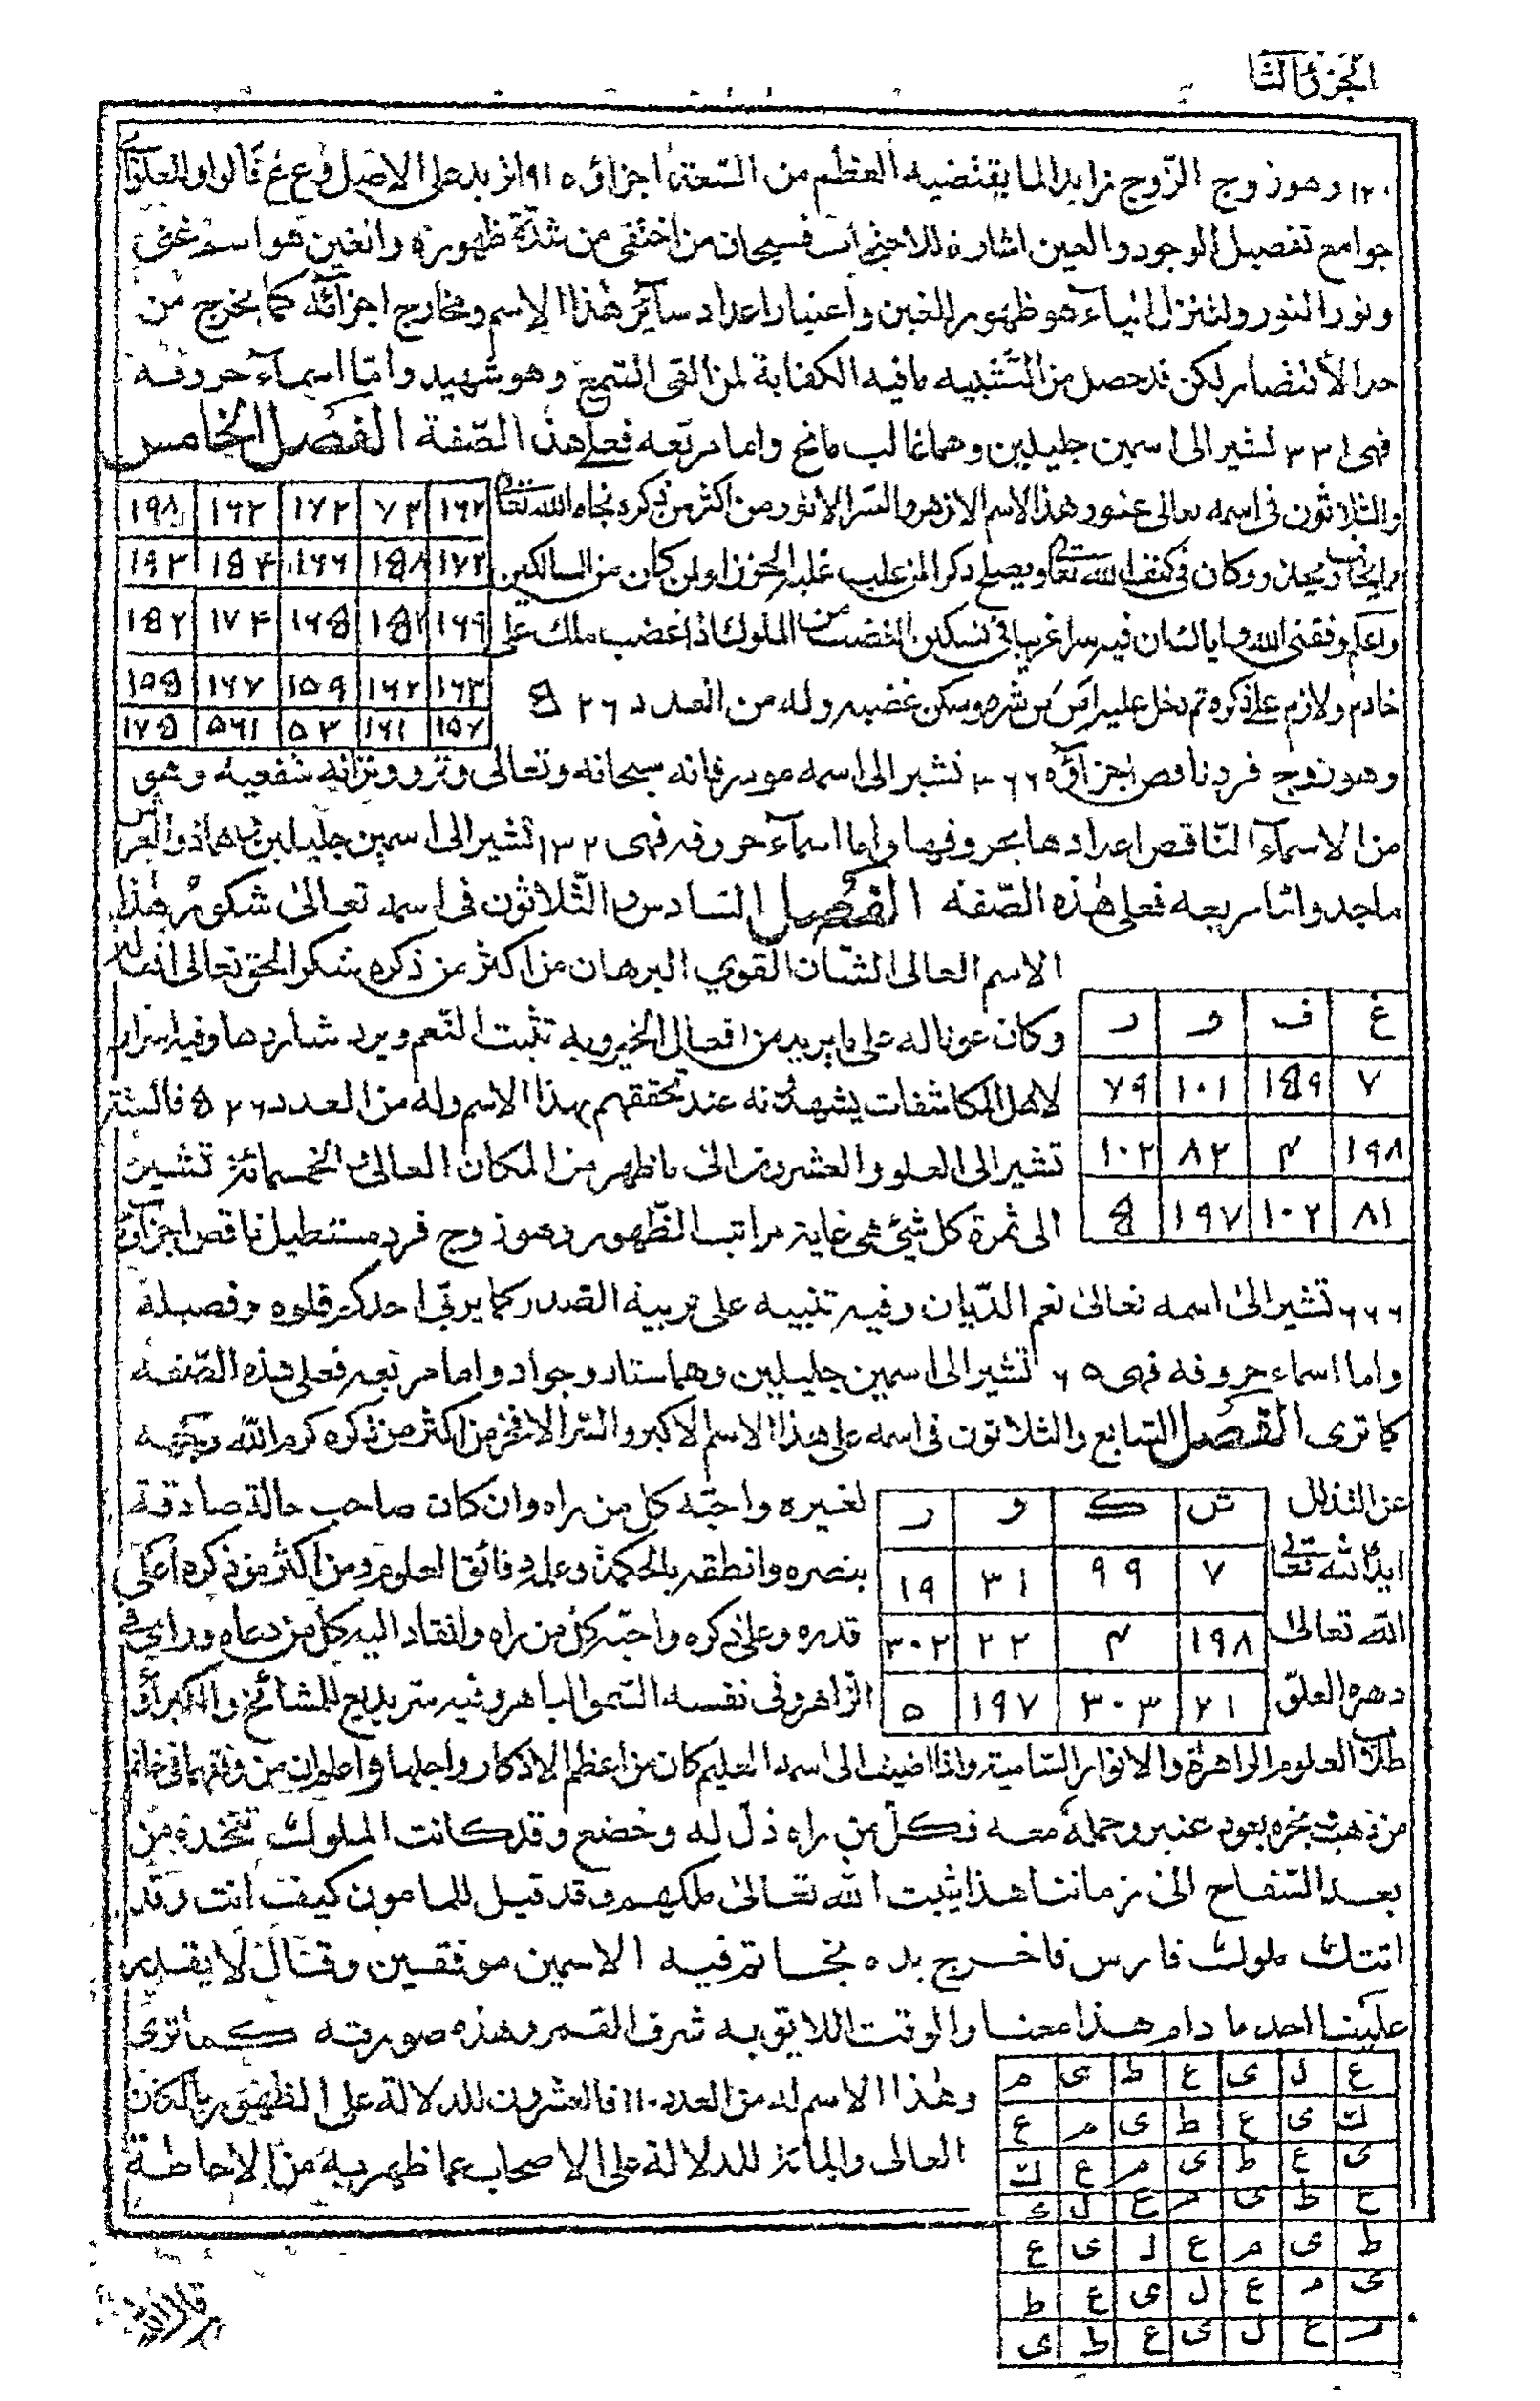 الجزء الثا
١٢٠ وهو زوج الزوج زايد لما يقتضيه العظم من السعة اجزاؤه ازيد على الاصل
جوامع تفصيل الوجود والعين اشارة للاحيثيات فسبحان من اختفى من شدة ظهوره والغين هو اسم
ونور النور ولتنزل الياء هو ظهور الغين واعتبار اعداد سائر هذا الاسم ومخارج اجزائه كما يخرج من
حد الاقتصار لكن قد حصل من التنبيه ما فيه الكفاية لمن القى السمع وهو شهيد واما اسماء حروفه
فهى ٣٣١ تشير الى اسمين جليلين وهما غالب مانح واما مربعه فعلى هذه الصفة الفصل الخامس
والثلاثون فى اسمه تعالى غفور هذا الاسم الازهر والسر الانور من اكثر من ذكره نجاه الله تعالى
مما يخاف ويحذر وكان فى كنف الله تعالى ويصلح ذكرا لمن غلب عليه الحزن اولمن كان من السالكين
واعلم وفقنى الله واياك ان فيه سرا غريبا فى تسكين الغضب من الملوك اذا غضب ملك على
خادم ولازم على ذكره ثم دخل عليه امن من شره وسكن غضبه وله من العدد
١٦٢ ٧٣ ١٧٢ ١٦٢ ١٩٨
١٧٢ ١۵٨ ١٦٦ ١۵۴ ١٩٣
١٦٩ ١۵٢ ١٦۵ ١٧۴ ١۵٢
١٦٣ ١٦٢ ١٥٩ ١٦٧ ١٥۵
١٥٧ ١٦١ ٥٣ ٥٦١ ١٧۵
وهو زوج فرد ناقص اجزاؤه ٣٦٦ تشير الى اسمه فانه سبحانه وتعالى وتر ووترانه شفعيه وهى
من الاسماء الناقص اعدادها بحروفها واما اسماء حروفه فهى ١٣٢ تشير الى اسمين جليلين وهما ذو العرش
ماجد واما مربعه فعلى هذه الصفة الفصل السادس والثلاثون فى اسمه تعالى شكور هذا
الاسم العالى الشان القوي البرهان من اكثر من ذكره شكر الحق تعالى
وكان عونا له على ما يريد من افعال الخير وبه تثبت النعم ويرد شاردها وفيه اسرار
لاهل المكاشفات يشهدونه عند تحققهم بهذا الاسم وله من العدد ۵٢٦ فالستة
تشير الى العلو والعشرون الى ما ظهر من المكان العالى والخمسمائة تشير
الى ثمرة كل شيء فى غاية مراتب الظهور وهو زوج فرد مستطيل ناقص اجزاؤه
غ ف و ر
٧ ١۵٩ ١٠١ ٧٩
١٩٨ ۴ ٨٢ ١٠٢
٨١ ١٠٢ ١٩٧ ۵
٦٦٦ تشير الى اسمه تعالى نعم الديان وفيه تنبيه على تربية الصدر كما يربى احدكم فلوه وفصيله
واما اسماء حروفه فهى ٦٥ تشير الى اسمين جليلين وهما ستار وجواد واما مربعه فعلى هذه الصفة
كما ترى الفصل السابع والثلاثون فى اسمه على هذا الاسم الاكبر والسر الافخر من اكثر من ذكره كرم الله وجهه
عن التذلل لغيره واحبه كل من راه وان كان صاحب حالة صادقة
ايده الله تعالى بنصره وانطقه بالحكمة وعلم دقائق العلوم ومن اكثر من ذكره اعلى
الله تعالى قدره وعلى ذكره واحبه كل من راه وانقاد اليه كل من دعاه وراى فى
دهره العلو الزاهر وفى نفسه السمو الباهر وفيه سر بديع للمشائخ والكبراء و
ش ك و ر
٧ ٩٩ ٣١ ١٩
١٩٨ ۴ ٢٢ ٣٠٢
٢١ ٣٠٣ ١٩٧ ٥
طلاب العلوم الزاهرة والانوار السامية واذا اضيف الى اسمه العليم كان من اعظم الاذكار واجلها واعلم ان من وفقهما فى خاتم
من ذهب وبخره بعود عنبر وحمله معه فكل من راه ذل له وخضع وقد كانت الملوك تتخذه من
بعد السفاح الى زماننا هذا يثبت الله تعالى ملكهم وقد قيل للمامون كيف انت وقد
اتتك ملوك فارس فاخرج يده بخاتم فيه الاسمين موفقين وقال لا يقدر
علينا احد ما دام هذا معنا والوقت اللايق به شرف القمر وهذه صورته كما ترى
وهذا الاسم له من العدد ١١٠ فالعشرة للدلالة على الظهور بالكون
العالى والمائة للدلالة على الاصحاب عما ظهر به من الاحاطة
ع ل ى ع ط ى م
ل ى ع ط ى م ع
ى ع ط ى م ع ل
ع ط ى م ع ل ى
ط ى م ع ل ى ع
ى م ع ل ى ع ط
م ع ل ى ع ط ى